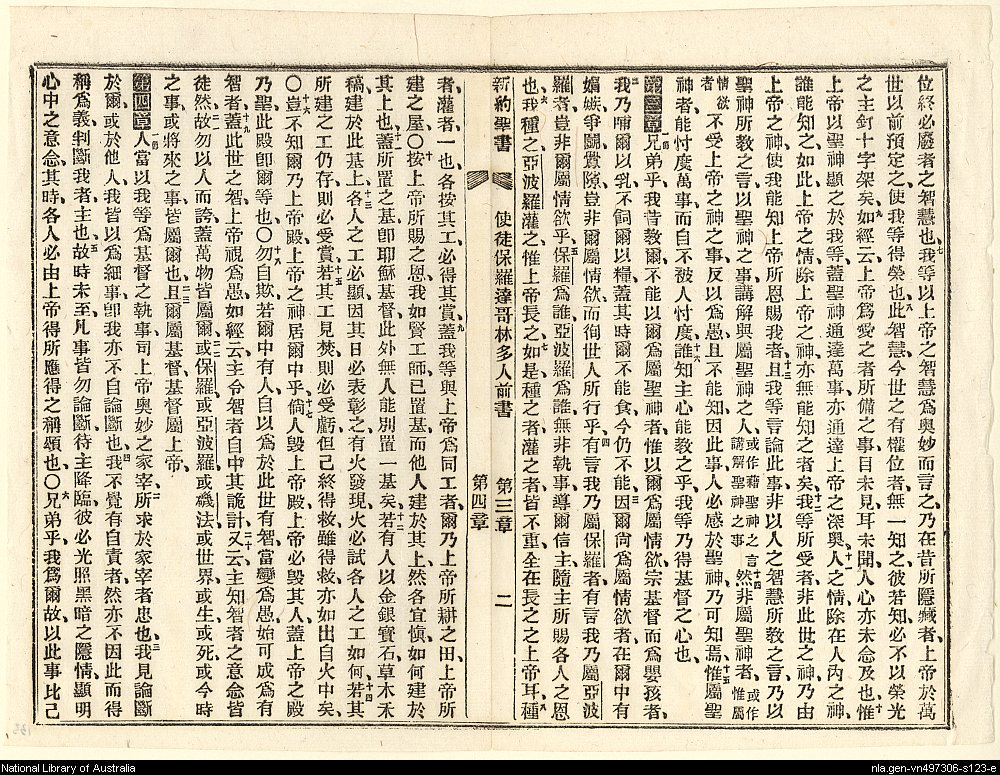 位終必廢者之智慧也七我等以上帝之智慧爲奧妙而言之乃在昔所隱藏者上帝於萬
世以前預定之使我等得榮也八此智慧今世之有權位者無一知之彼若知必不以榮光
之主釘十字架矣九如經云上帝爲愛之者所備之事目未見耳未聞人心亦未念及也十惟
上帝以聖神顯之於我等蓋聖神通達萬事亦通達上帝之深奧十一人之情除在人內之神
誰能知之如此上帝之情除上帝之神亦無能知之者矣十二我等所受者非此世之神乃由
上帝之神使我能知上帝所恩賜我者十三且我等言論此事非以人之智慧所敎之言乃以
聖神所敎之言以聖神之事講解與屬聖神之人或作藉聖神之言講解聖神之事十四然非屬聖神者或作惟屬
情欲者不受上帝之神之事反以爲愚且不能知因此事人必感於聖神乃可知焉十五惟屬聖
神者能忖度萬事而自不被人忖度十六誰知主心能敎之乎我等乃得基督之心也
第三章一兄弟乎我昔敎爾不能以爾爲屬聖神者惟以爾爲屬情欲宗基督而爲嬰孩者二
我乃哺爾以乳不飼爾以糧蓋其時爾不能食今仍不能三因爾尙爲屬情欲者在爾中有
媢嫉爭鬬釁隙豈非爾屬情欲而徇世人所行乎四有言我乃屬保羅者有言我乃屬亞波
羅者豈非爾屬情欲乎五保羅爲誰亞波羅爲誰無非執事導爾信主隨主所賜各人之恩
也六我種之亞波羅灌之惟上帝長之七如是種之者灌之者皆不重全在長之之上帝耳八種
新約聖書 使徒保羅達哥林多人前書 第三章 第四章 二
者灌者一也各按其工必得其賞九蓋我等與上帝爲同工者爾乃上帝所耕之田上帝所
建之屋〇十按上帝所賜之恩我如賢工師已置基而他人建於其上然各宜愼如何建於
其上也十一蓋所置之基卽耶穌基督此外無人能別置一基矣十二若有人以金銀寶石草木禾
稿建於此基上十三各人之工必顯因其日必表彰之有火發現火必試各人之工如何十四若其
所建之工仍存則必受賞十五若其工見焚則必受虧但己終得救雖得救亦如出自火中矣
〇十六豈不知爾乃上帝殿上帝之神居爾中乎十七倘人毀上帝殿上帝必毀其人蓋上帝之殿
乃聖此殿卽爾等也〇十八勿自欺若爾中有人自以爲於此世有智當變爲愚始可成爲有
智者十九蓋此世之智上帝視爲愚如經云主令智者自中其詭計二十又云主知智者之意念皆
徒然二一故勿以人而誇蓋萬物皆屬爾二二或保羅或亞波羅或磯法或世界或生或死或今時
之事或將來之事皆屬爾也二三且爾屬基督基督屬上帝
第四章一人當以我等爲基督之執事司上帝奧妙之家宰二所求於家宰者忠也三我見論斷
於爾或於他人我皆以爲細事卽我亦不自論斷也四我不覺有自責者然亦不因此而得
稱爲義判斷我者主也五故時未至凡事皆勿論斷待主降臨彼必光照黑暗之隱情顯明
心中之意念其時各人必由上帝得所應得之稱頌也〇六兄弟乎我爲爾故以此事比己
National Library of Australia
nla.gen-vn497306-s123-e